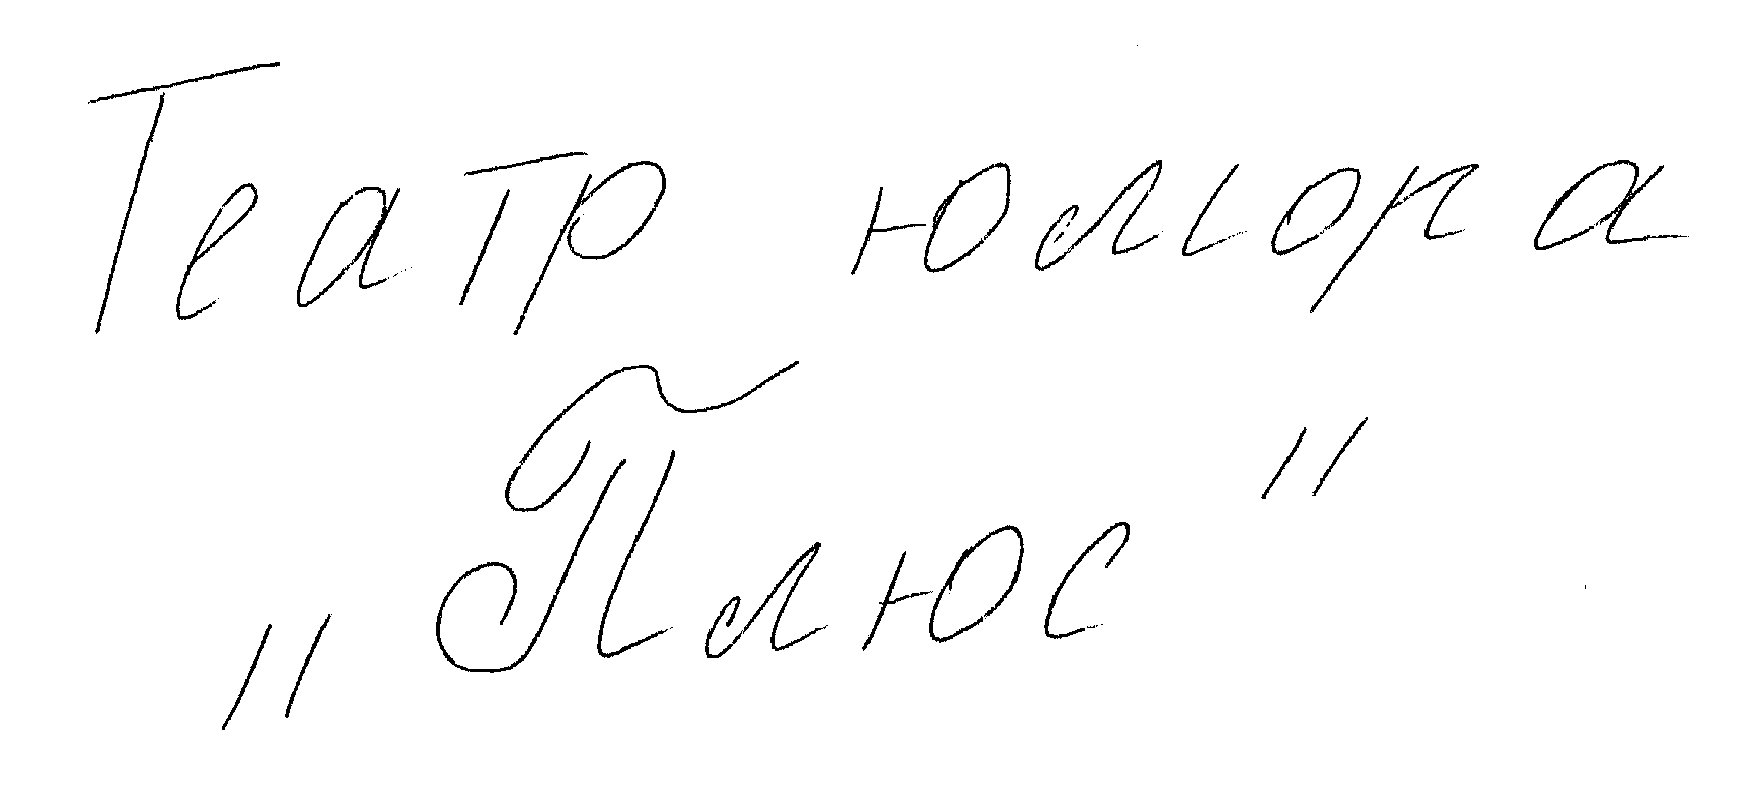 Театр юмора
„Плюс"